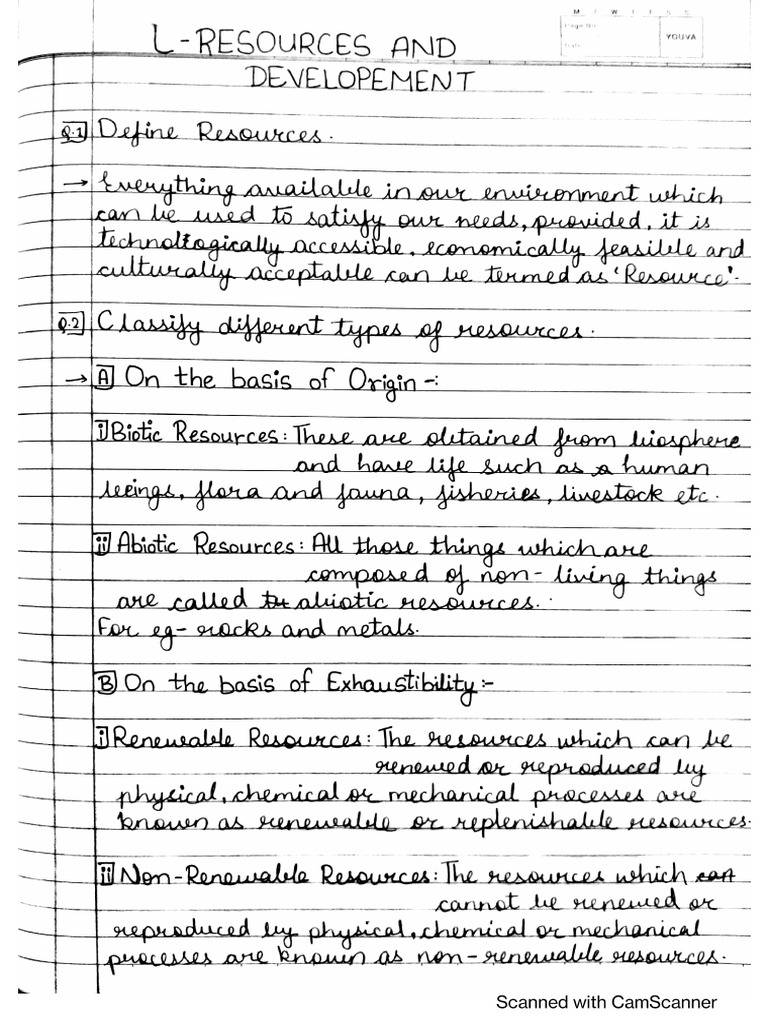 M T W T F S S
Page No.:
Date:
YOUVA
L-RESOURCES AND
DEVELOPEMENT
Q.1 Define Resources.
→ Everything available in our environment which
can be used to satisfy our needs, provided, it is
technologically accessible, economically feasible and
culturally acceptable can be termed as 'Resource'.
Q.2 Classify different types of resources.
→ A On the basis of Origin -:
i Biotic Resources: These are obtained from biosphere
and have life such as human
beings, flora and fauna, fisheries, livestock etc.
ii Abiotic Resources: All those things which are
composed of non-living things
are called abiotic resources.
For eg- rocks and metals.
B On the basis of Exhaustibility :-
i Renewable Resources: The resources which can be
renewed or reproduced by
physical, chemical or mechanical processes are
known as renewable or replenishable resources.
ii Non-Renewable Resources: The resources which
cannot be renewed or
reproduced by physical, chemical or mechanical
processes are known as non-renewable resources.
Scanned with CamScanner